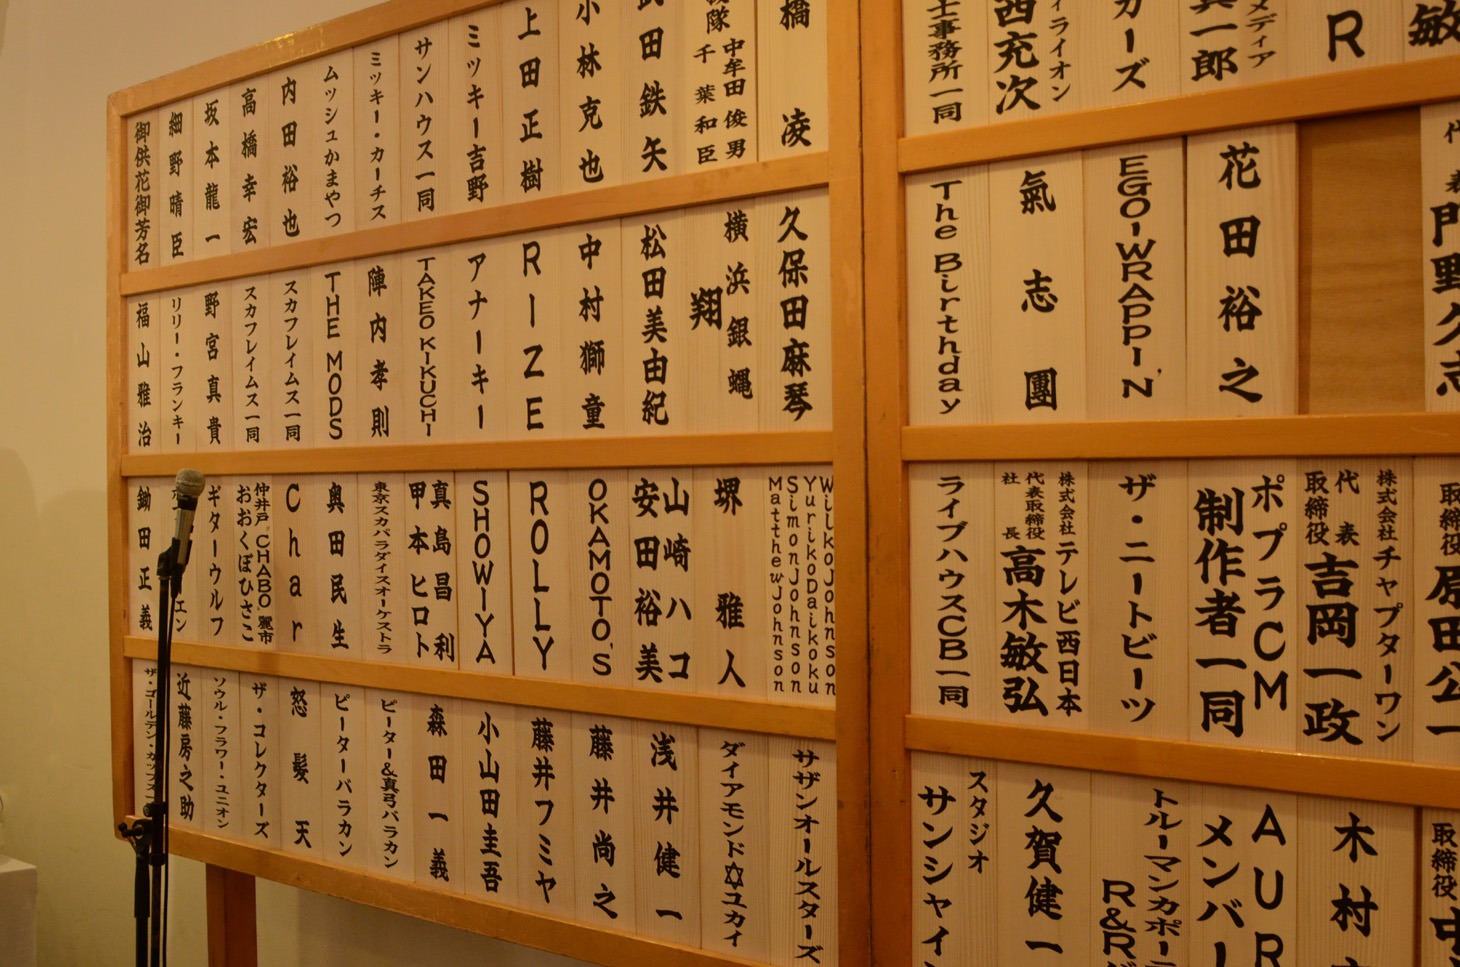 御供花御芳名
細野晴臣
坂本龍一
高橋幸宏
内田裕也
ムッシュかまやつ
ミッキー・カーチス
サンハウス一同
ミッキー吉野
上田正樹
小林克也
田鉄矢
隊
中牟田俊男
千葉和臣
橋凌
福山雅治
リリー・フランキー
野宮真貴
スカフレイムス一同
スカフレイムス一同
THE MODS
陣内孝則
TAKEO KIKUCHI
アナーキー
RIZE
中村獅童
松田美由紀
横浜銀蝿
翔
久保田麻琴
鋤田正義
エン
ギターウルフ
仲井戸"CHABO"麗市
おおくぼひさこ
Char
奥田民生
東京スカパラダイスオーケストラ
真島昌利
甲本ヒロト
SHOWIYA
ROLLY
OKAMOTO'S
山崎ハコ
安田裕美
堺雅人
WilkoJohnson
YurikoDaikoku
SimonJohnson
MatthewJohnson
ザ・ゴールデン・カップス
近藤房之助
ソウル・フラワー・ユニオン
ザ・コレクターズ
怒髪天
ピーターバラカン
ピーター&真弓バラカン
森田一義
小山田圭吾
藤井フミヤ
藤井尚之
浅井健一
ダイアモンド✡ユカイ
サザンオールスターズ
士事務所一同
ィライオン
西充次
カーズ
メディア
真一郎
R
敏
The Birthday
氣志團
EGO-WRAPPIN'
花田裕之
代表
門野久志
ライブハウスCB一同
株式会社テレビ西日本
代表取締役社長
高木敏弘
ザ・ニートビーツ
ポプラCM
制作者一同
株式会社チャプターワン
代表取締役
吉岡一政
取締役
原田公一
スタジオ
サンシャイ
久賀健一
トルーマンカポー
R&R
AUR
メンバー
木村
取締役
中